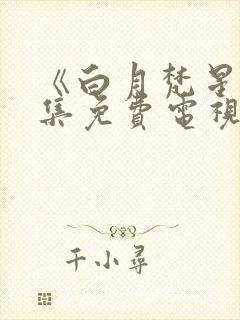 《白月梵星
集免費電視
千小尋